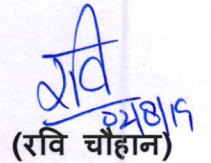 रवि
02/8/19
(रवि चौहान)